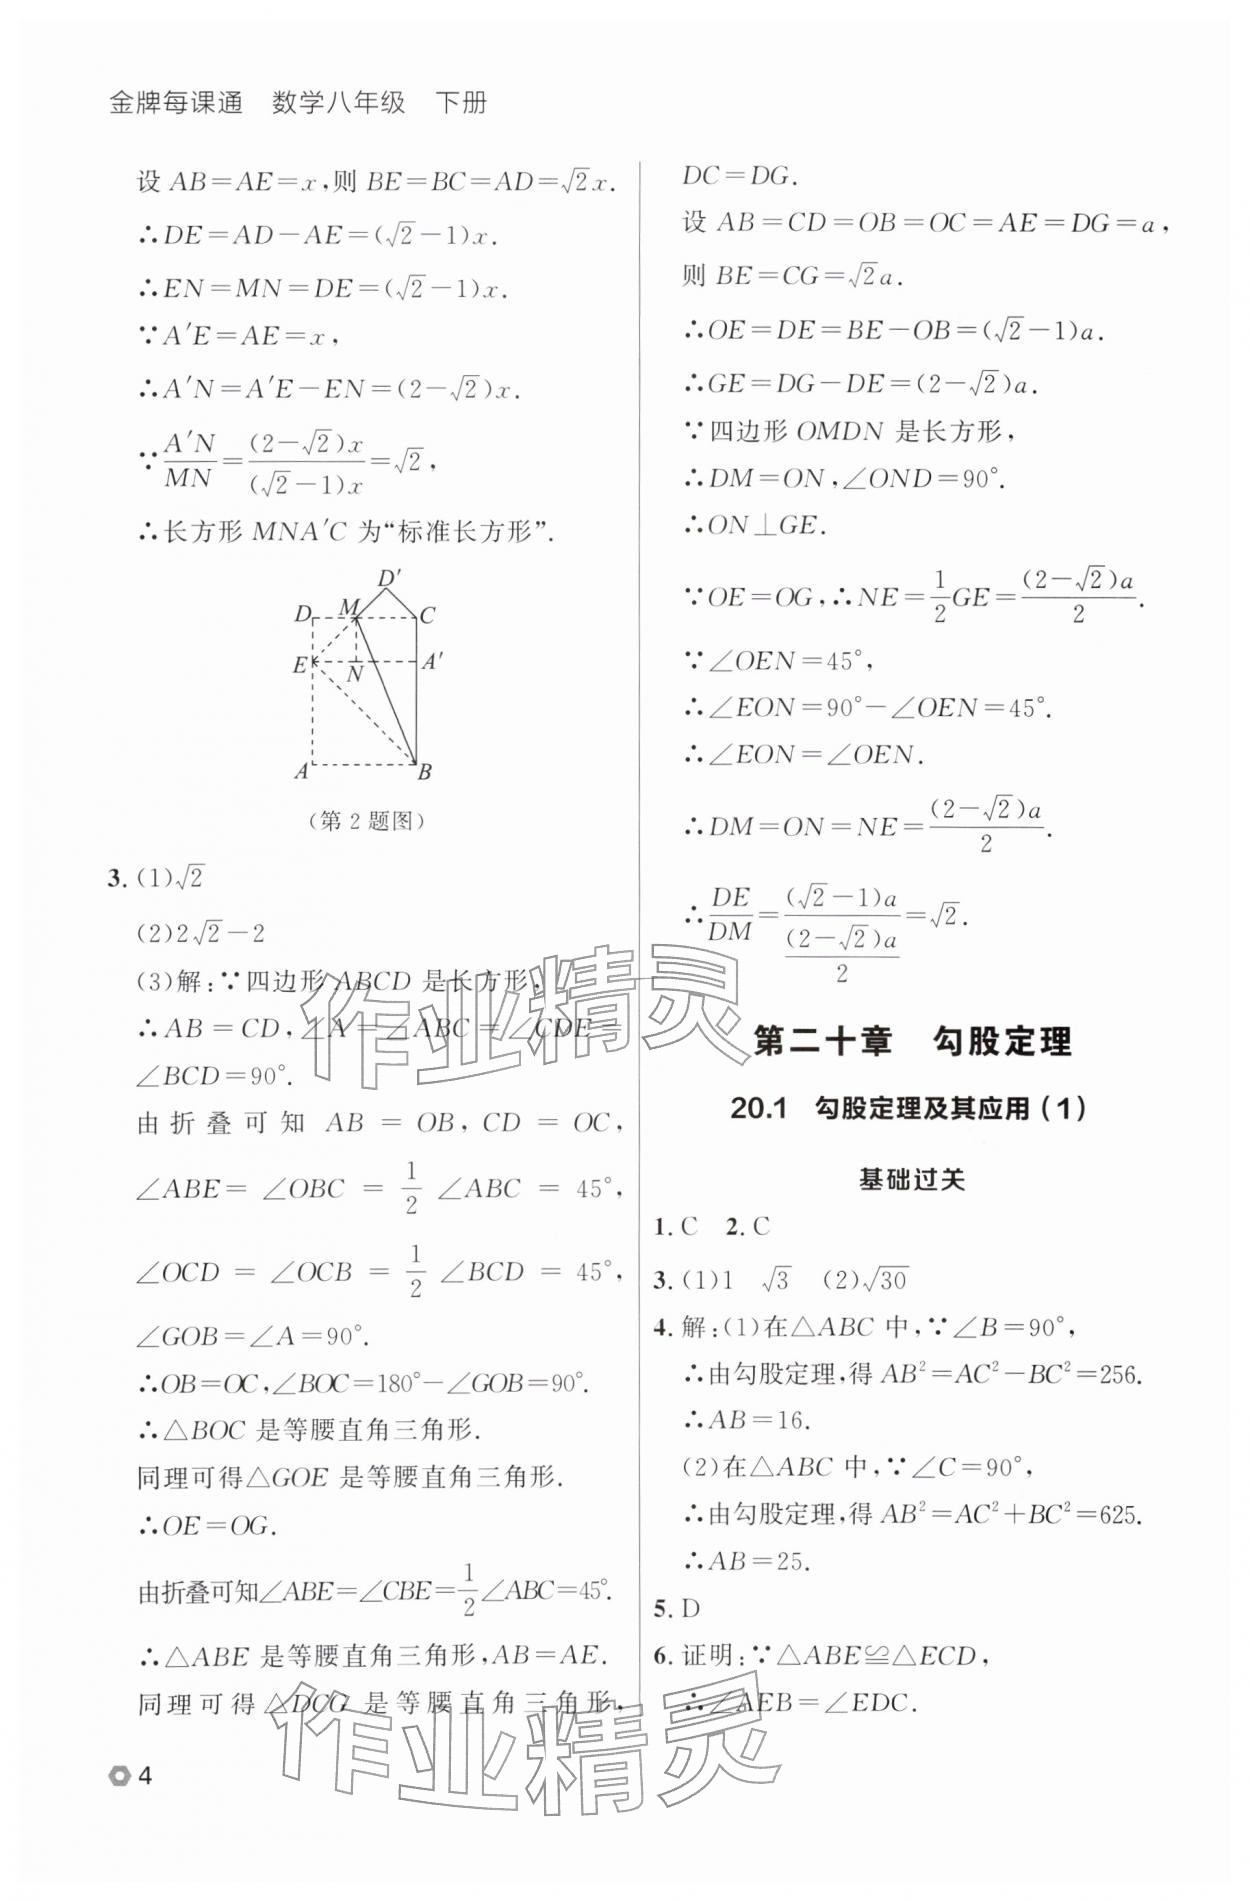 金牌每课通 数学八年级 下册
设 AB=AE=x,则 BE=BC=AD=√2x.
∴DE=AD-AE=(√2-1)x.
∴EN=MN=DE=(√2-1)x.
∵A′E=AE=x,
∴A′N=A′E-EN=(2-√2)x.
∵A′N/MN=(2-√2)x/(√2-1)x=√2,
∴长方形 MNA′C 为“标准长方形”.
D′
D M C
E N A′
A B
(第 2 题图)
3. (1)√2
(2)2√2-2
(3)解:∵四边形 ABCD 是长方形,
∴AB=CD,∠A=∠ABC=∠CDE=
∠BCD=90°.
由折叠可知 AB=OB,CD=OC,
∠ABE=∠OBC=1/2∠ABC=45°,
∠OCD=∠OCB=1/2∠BCD=45°,
∠GOB=∠A=90°.
∴OB=OC,∠BOC=180°-∠GOB=90°.
∴△BOC 是等腰直角三角形.
同理可得△GOE 是等腰直角三角形.
∴OE=OG.
由折叠可知∠ABE=∠CBE=1/2∠ABC=45°.
∴△ABE 是等腰直角三角形,AB=AE.
同理可得△DCG 是等腰直角三角形,
4
DC=DG.
设 AB=CD=OB=OC=AE=DG=a,
则 BE=CG=√2a.
∴OE=DE=BE-OB=(√2-1)a.
∴GE=DG-DE=(2-√2)a.
∵四边形 OMDN 是长方形,
∴DM=ON,∠OND=90°.
∴ON⊥GE.
∵OE=OG,∴NE=1/2GE=(2-√2)a/2.
∵∠OEN=45°,
∴∠EON=90°-∠OEN=45°.
∴∠EON=∠OEN.
∴DM=ON=NE=(2-√2)a/2.
∴DE/DM=(√2-1)a/((2-√2)a/2)=√2.
第二十章 勾股定理
20.1 勾股定理及其应用(1)
基础过关
1. C 2. C
3. (1)1 √3 (2)√30
4. 解:(1)在△ABC 中,∵∠B=90°,
∴由勾股定理,得 AB²=AC²-BC²=256.
∴AB=16.
(2)在△ABC 中,∵∠C=90°,
∴由勾股定理,得 AB²=AC²+BC²=625.
∴AB=25.
5. D
6. 证明:∵△ABE≌△ECD,
∴∠AEB=∠EDC.
作业精灵
作业精灵